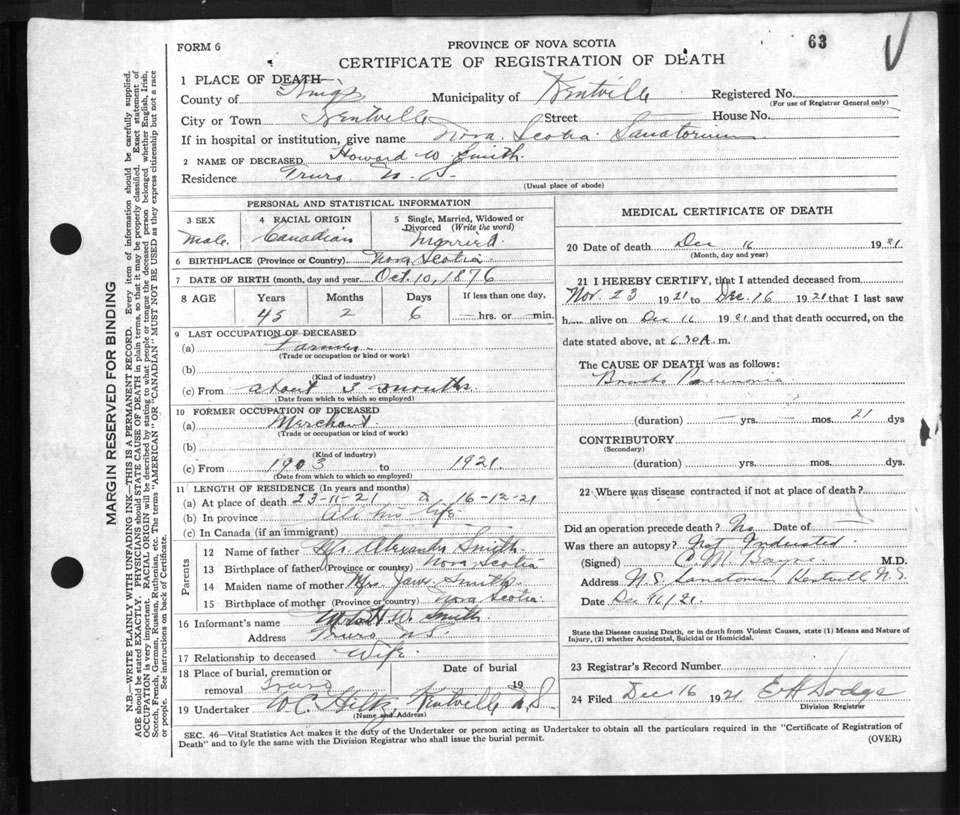 63
FORM 6
PROVINCE OF NOVA SCOTIA
CERTIFICATE OF REGISTRATION OF DEATH
1 PLACE OF DEATH—
County of Kings Municipality of Kentville Registered No.
(For use of Registrar General only)
City or Town Kentville Street House No.
If in hospital or institution, give name Nova Scotia Sanatorium
2 NAME OF DECEASED Howard W. Smith.
Residence Truro N. S.
(Usual place of abode)
PERSONAL AND STATISTICAL INFORMATION
3 SEX
Male.
4 RACIAL ORIGIN
Canadian
5 Single, Married, Widowed or
Divorced (Write the word)
Married.
6 BIRTHPLACE (Province or Country) Nova Scotia
7 DATE OF BIRTH (month, day and year) Oct. 10, 1876
8 AGE Years Months Days If less than one day,
45 2 6 — hrs. or — min.
9 LAST OCCUPATION OF DECEASED
(a) Farmer
(Trade or occupation or kind or work)
(b)
(Kind of industry)
(c) From about 3 months.
(Date from which to which so employed)
10 FORMER OCCUPATION OF DECEASED
(a) Merchant.
(Trade or occupation or kind of work)
(b)
(Kind of industry)
(c) From 1903 to 1921.
(Date from which to which so employed)
11 LENGTH OF RESIDENCE (In years and months)
(a) At place of death 23-11-21 to 16-12-21
(b) In province All his life
(c) In Canada (if an immigrant)
Parents
12 Name of father Mr. Alexander Smith.
13 Birthplace of father (Province or country) Nova Scotia
14 Maiden name of mother Mrs. Smith.
15 Birthplace of mother (Province or country) Nova Scotia
16 Informant's name Smith
Address Truro N.S.
17 Relationship to deceased Wife.
18 Place of burial, cremation or Date of burial
removal Truro 19
19 Undertaker W.C. Kentville N.S.
(Name and Address)
MEDICAL CERTIFICATE OF DEATH
20 Date of death Dec 16 1921
(Month, day and year)
21 I HEREBY CERTIFY, that I attended deceased from
Nov. 23 1921 to Dec. 16 1921 that I last saw
him alive on Dec 16 1921 and that death occurred, on the
date stated above, at 6.30 A. m.
The CAUSE OF DEATH was as follows:
Broncho Pneumonia
(duration) — yrs. — mos. 21 dys
CONTRIBUTORY
(Secondary)
(duration) yrs. mos. dys.
22 Where was disease contracted if not at place of death?
Did an operation precede death? No Date of
Was there an autopsy? Not Indicated.
(Signed) C. M. M.D.
Address N.S. Sanatorium Kentville N.S.
Date Dec 16/21.
State the Disease causing Death, or in death from Violent Causes, state (1) Means and Nature of
Injury, (2) whether Accidental, Suicidal or Homicidal.
23 Registrar's Record Number
24 Filed Dec 16 1921 E H Dodge
Division Registrar
SEC. 46—Vital Statistics Act makes it the duty of the Undertaker or person acting as Undertaker to obtain all the particulars required in the "Certificate of Registration of
Death" and to fyle the same with the Division Registrar who shall issue the burial permit.
(OVER)
MARGIN RESERVED FOR BINDING
N.B.—WRITE PLAINLY WITH UNFADING INK—THIS IS A PERMANENT RECORD. Every item of information should be carefully supplied.
AGE should be stated EXACTLY. PHYSICIANS should STATE CAUSE OF DEATH in plain terms, so that it may be properly classified. Exact statement of
OCCUPATION is very important. RACIAL ORIGIN will be described by stating to what people or tongue the deceased person belonged, whether English, Irish,
Scotch, French, German, Russian, Ruthenian, etc. The terms "AMERICAN" OR "CANADIAN" MUST NOT BE USED as they express citizenship but not a race
or people. See instructions on back of Certificate.